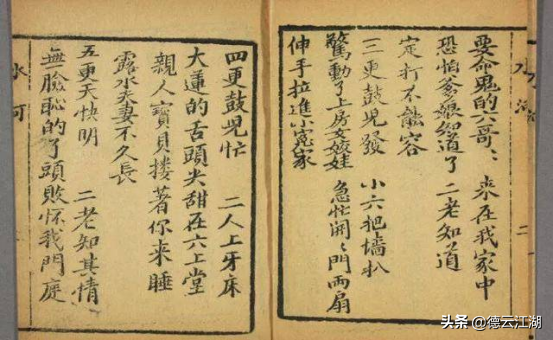 要命鬼的六哥〻 来在我家中
恐怕爹娘知道了 二老知道
定打不能容
三更鼓兒發 小六把墻扒
驚動了上房女姣娃 急忙開〻門兩扇
伸手拉進小冤家
四更鼓兒忙 二人上牙床
大蓮的舌頭尖甜在六上堂
親人寶貝摟著你来睡
露水夫妻不久長
五更天快明 二老知其情
無臉恥的了頭敗怀我門庭
水河
头条 @德云江湖